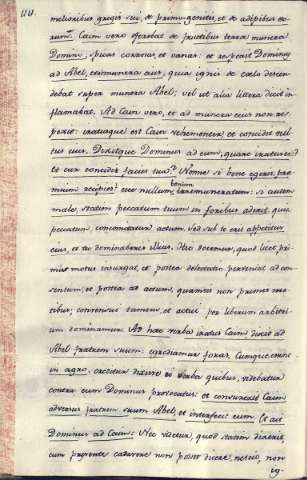 melioribus gregis sui, de primogenitis, et de adipibus eo
rum. Cain vero offerebat de fructibus terra munera
Domino, spicas corosas, et vanas: et respexit Dominus
ad Abel, et ad munera eius, quia ignis de coelo descen
debat super munera Abel; vel ut alia littera dicit in
flamabat. Ad Cain vero, et ad munera eius non res
pexit: iratusque est Cain vehementer, et concidit vul
tus eius. Dixitque Dominus ad eum, quare iratus es?
et cur concidit facies tua? Nonne si bene egeris, pre
mium recipies? cum nullum bonum irremuneratum: si autem
male, statim peccatum tuum in foribus aderit, quia
peccatum, concomitatur actum, sed sub te erit appetitus
eius, et tu dominaberis illius. Hic docemur, quod licet pri
mus motus insurgat, et postea delectatio perveniat ad con
sensum, et postea ad actum, quamvis non primis mo
tibus; consensui tamen, et actui per liberum arbitri
um dominamur. Ad hac verba iratus Cain dixit ad
Abel fratrem suum: egrediamur foras. Cumque essent
in agro, exceditur dixisse ei verba quibus, videbatur
contra eum Dominus provocatus: et consurrexit Cain
adversus fratrem suum Abel, et interfecit eum. Et ait
Dominus ad Cain: Nec videtur, quod statim dixerit,
cum presente cadavere non posset dicere, nescio, non